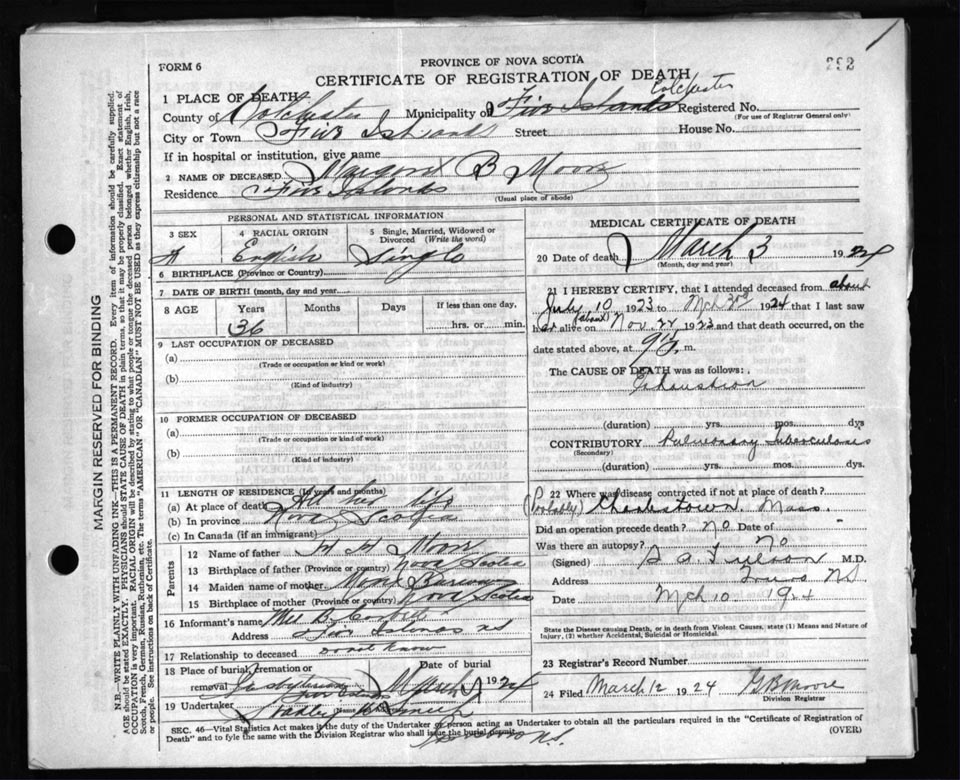 FORM 6
PROVINCE OF NOVA SCOTIA
292
CERTIFICATE OF REGISTRATION OF DEATH
1 PLACE OF DEATH
Colchester
County of Colchester Municipality of Five Islands Registered No.
(For use of Registrar General only)
City or Town Five Islands Street House No.
If in hospital or institution, give name
2 NAME OF DECEASED Margaret B Moore
Residence Five Islands
(Usual place of abode)
PERSONAL AND STATISTICAL INFORMATION
3 SEX 4 RACIAL ORIGIN 5 Single, Married, Widowed or Divorced (Write the word)
English Single
6 BIRTHPLACE (Province or Country)
7 DATE OF BIRTH (month, day and year)
8 AGE Years Months Days If less than one day,
36 hrs. or min.
9 LAST OCCUPATION OF DECEASED
(a)
(Trade or occupation or kind or work)
(b)
(Kind of industry)
10 FORMER OCCUPATION OF DECEASED
(a)
(Trade or occupation or kind of work)
(b)
(Kind of industry)
11 LENGTH OF RESIDENCE (In years and months)
(a) At place of death All her life
(b) In province Nova Scotia
(c) In Canada (if an immigrant)
Parents
12 Name of father Moore
13 Birthplace of father (Province or country) Nova Scotia
14 Maiden name of mother
15 Birthplace of mother (Province or country) Nova Scotia
16 Informant's name
Address Five Islands NS
17 Relationship to deceased do not know
18 Place of burial, cremation or Date of burial
removal Presbyterian March 1924
19 Undertaker
MEDICAL CERTIFICATE OF DEATH
20 Date of death March 3 1924
(Month, day and year)
21 I HEREBY CERTIFY, that I attended deceased from about
July 10 1923 to Mch 3rd 1924 that I last saw
her alive on (about) Nov. 22 1923 and that death occurred, on the
date stated above, at m.
The CAUSE OF DEATH was as follows:
Exhaustion
(duration) yrs. mos. dys
CONTRIBUTORY Pulmonary Tuberculosis
(Secondary)
(duration) yrs. mos. dys.
22 Where was disease contracted if not at place of death?
(Probably) Charlestown Mass.
Did an operation precede death? No Date of
Was there an autopsy? No
(Signed) M.D.
Address Truro NS
Date Mch 10 1924
State the Disease causing Death, or in death from Violent Causes, state (1) Means and Nature of Injury, (2) whether Accidental, Suicidal or Homicidal.
23 Registrar's Record Number
24 Filed March 12 1924 G B Moore
Division Registrar
SEC. 46—Vital Statistics Act makes it the duty of the Undertaker or person acting as Undertaker to obtain all the particulars required in the "Certificate of Registration of
Death" and to fyle the same with the Division Registrar who shall issue the burial permit.
(OVER)
MARGIN RESERVED FOR BINDING
N.B.—WRITE PLAINLY WITH UNFADING INK—THIS IS A PERMANENT RECORD. Every item of information should be carefully supplied.
AGE should be stated EXACTLY. PHYSICIANS should STATE CAUSE OF DEATH in plain terms, so that it may be properly classified. Exact statement of
OCCUPATION is very important. RACIAL ORIGIN will be described by stating to what people or tongue the deceased person belonged whether English, Irish,
Scotch, French, German, Russian, Ruthenian, etc. The terms "AMERICAN" or "CANADIAN" MUST NOT BE USED as they express citizenship but not a race
or people. See instructions on back of Certificate.